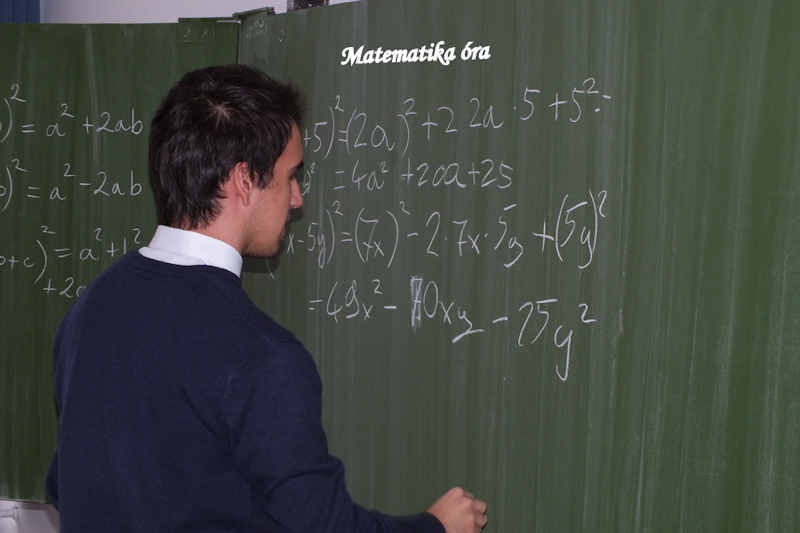 Matematika óra
)² = a² + 2ab
)² = a² - 2ab
+c)² = a² + 
+ 2
+5)² = (2a)² + 2 2a · 5 + 5² =
= 4a² + 20a + 25
x - 5y)² = (7x)² - 2 · 7x · 5y + (5y)²
= 49x² - 70xy - 25y²